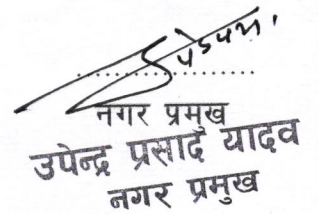 नगर प्रमुख
उपेन्द्र प्रसाद यादव
नगर प्रमुख